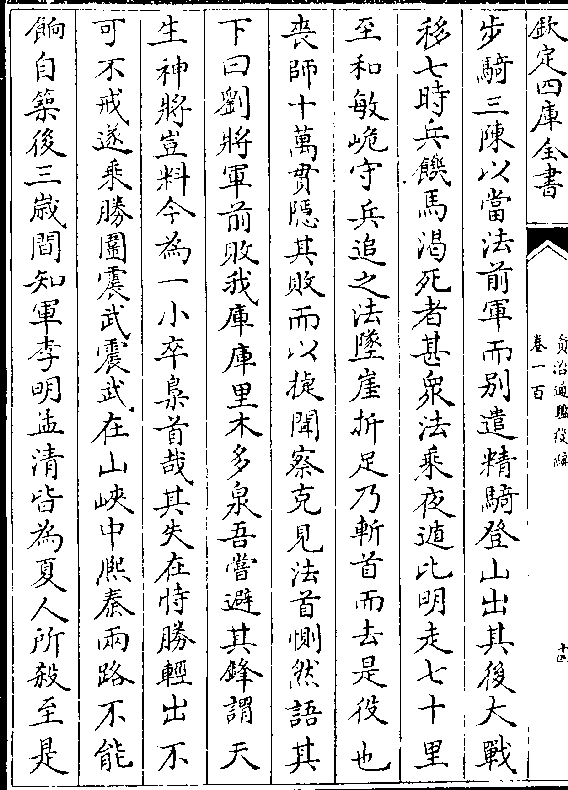 欽定四庫全書
資治通鑑後編
卷一百
十四
步騎三陳以當法前軍而别遣精騎登山出其後大戰
移七時兵饑馬渴死者甚衆法乘夜遁比明走七十里
至和敏峗守兵追之法墜崖折足乃斬首而去是役也
喪師十萬貫隱其敗而以捷聞察克見法首惻然語其
下曰劉將軍前敗我庫庫里木多泉吾嘗避其鋒謂天
生神將豈料今為一小卒梟首哉其失在恃勝輕出不
可不戒遂乘勝圍震武震武在山峽中熈秦兩路不能
餉自築後三歳間知軍李明孟清皆為夏人所殺至是